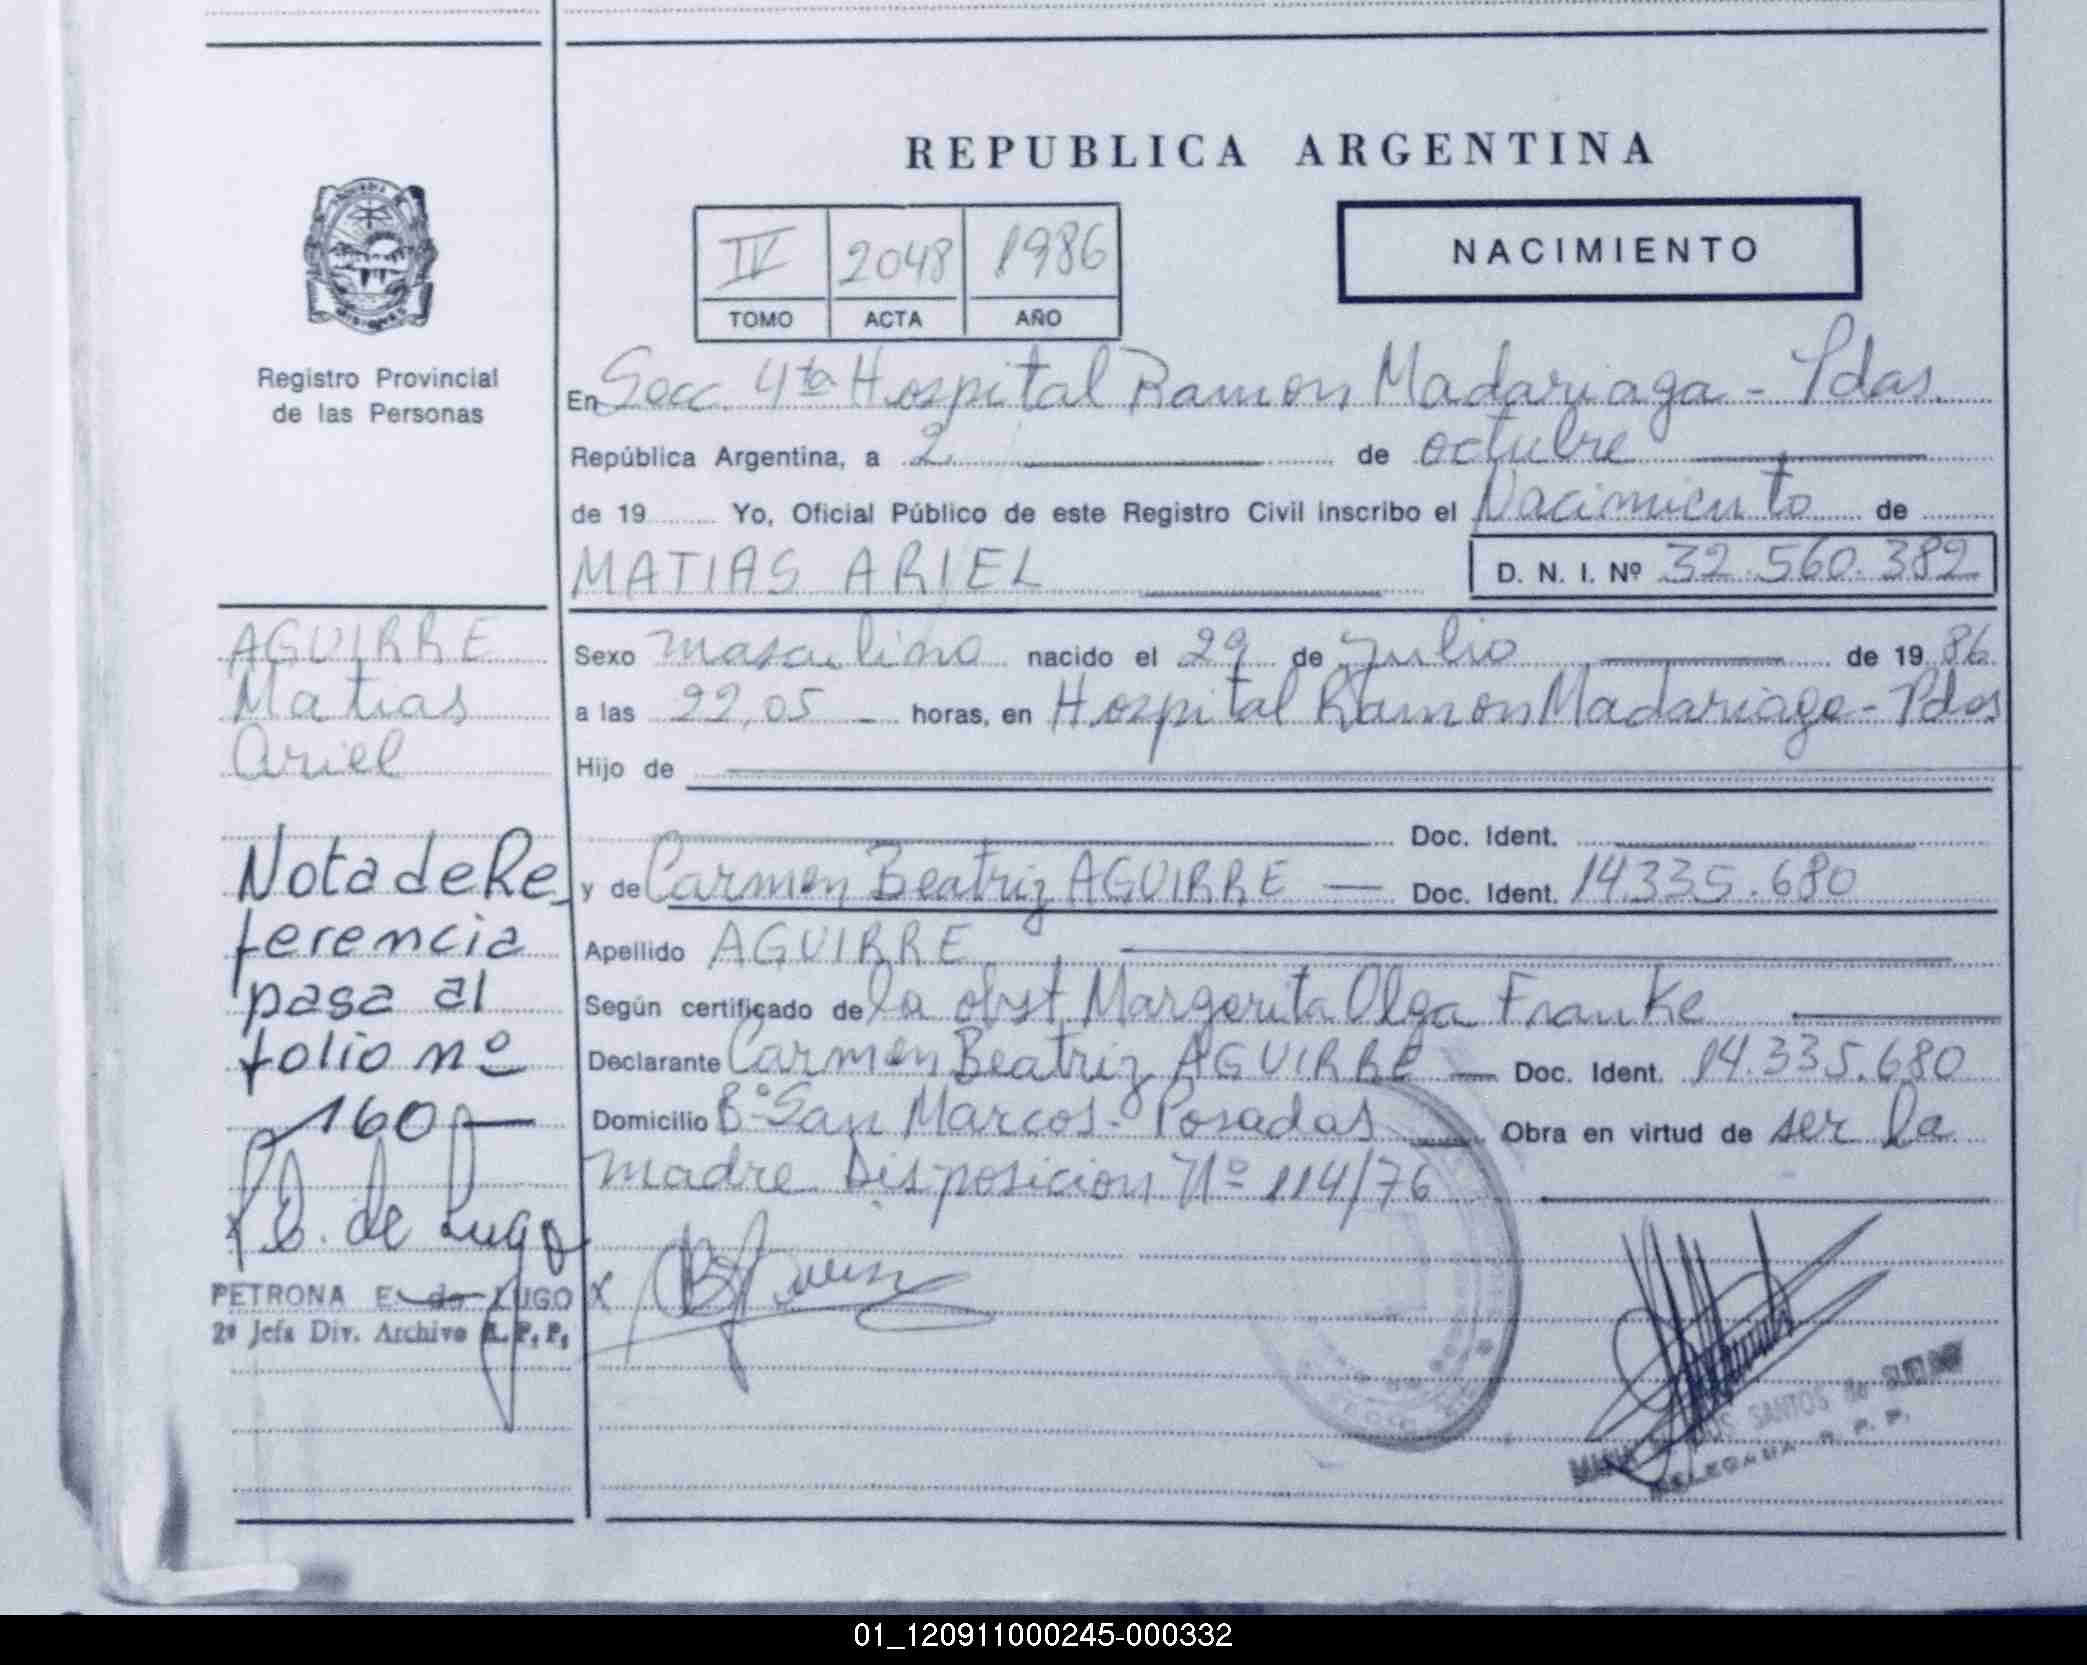 REPUBLICA ARGENTINA
IV 2048 1986
TOMO ACTA AÑO
NACIMIENTO
Registro Provincial
de las Personas
En Secc. 4ta Hospital Ramon Madariaga - Pdas.
República Argentina, a 2 de octubre
de 19 Yo, Oficial Público de este Registro Civil inscribo el Nacimiento de
MATIAS ARIEL D. N. I. Nº 32.560.382
AGUIRRE
Matias
Ariel
Sexo masculino nacido el 29 de Julio de 19 86
a las 22,05 - horas, en Hospital Ramon Madariaga - Pdas
Hijo de
Doc. Ident.
y de Carmen Beatriz AGUIRRE — Doc. Ident. 14.335.680
Apellido AGUIRRE
Según certificado de la obst. Margarita Olga Franke
Declarante Carmen Beatriz AGUIRRE — Doc. Ident. 14.335.680
Domicilio Bº San Marcos - Posadas Obra en virtud de ser la
madre Disposicion Nº 114/76
Nota de Re_
ferencia
pasa al
folio nº
160 —
P. E. de Lugo
PETRONA E. de LUGO
2ª Jefa Div. Archivo R. P. P.
SANTOS de
DELEGADA R. P. P.
01_120911000245-000332